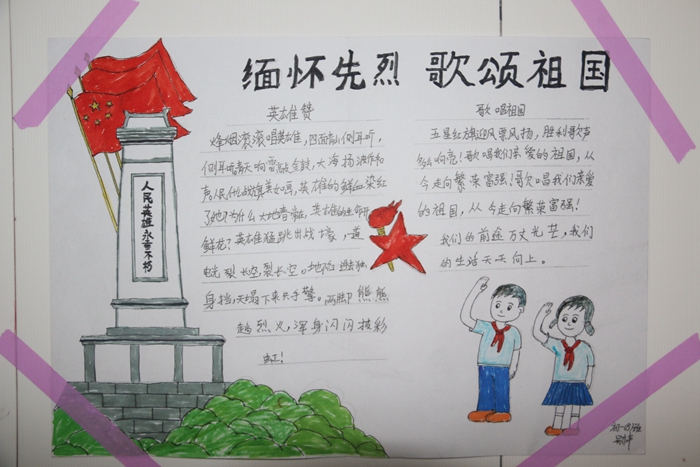 缅怀先烈 歌颂祖国
人民英雄永垂不朽
英雄赞
烽烟滚滚唱英雄，四面青山侧耳听，
侧耳听晴天响雷敲金鼓，大海扬波作和
声人民战士
战旗美如画，英雄的鲜血染红
了她？为什么大地春常在，英雄的生命开
鲜花？英雄猛跳出战壕，一道
电光裂长空，裂长空。地陷
身挡，天塌下来只手擎。两脚 熊熊
趟烈火，浑身闪闪披彩
虹！
歌唱祖国
五星红旗迎风飘扬，胜利歌声
多么响亮！歌唱我们亲爱的祖国，从
今走向繁荣富强！歌唱我们亲爱
的祖国，从今走向繁荣富强！
我们的前途万丈光芒，我们
的生活天天向上。